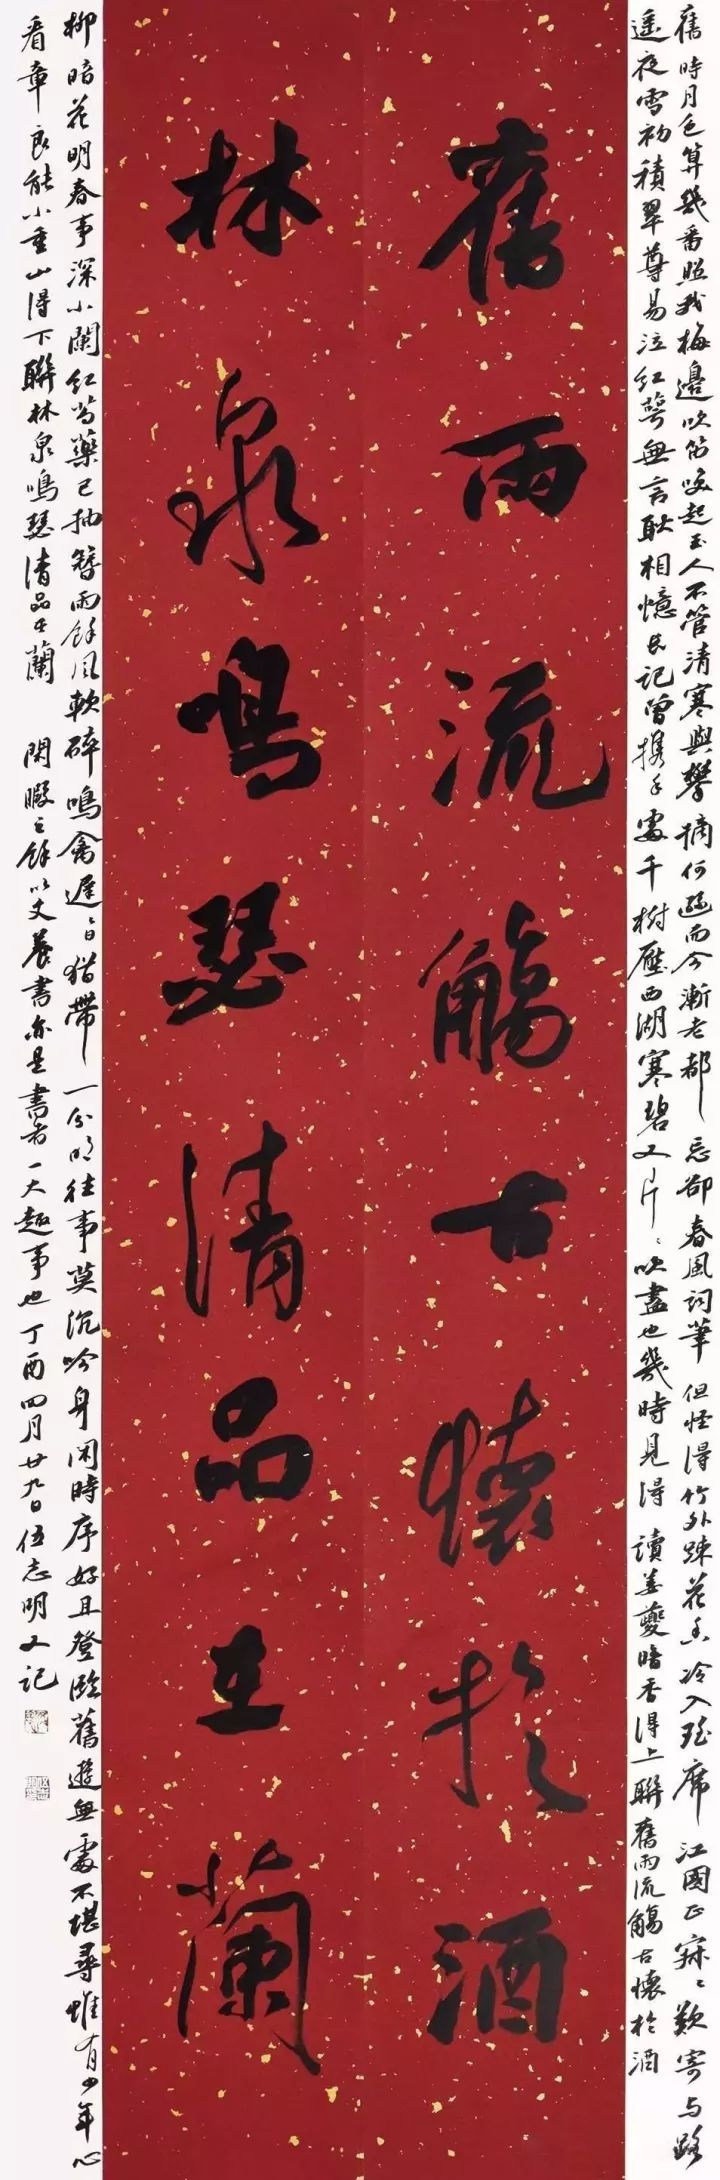 舊時月色算幾番照我梅邊吹笛喚起玉人不管清寒與攀摘何遜而今漸老都忘卻春風詞筆但怪得竹外疎花香冷入瑤席江國正寂〻歎寄與路
遙夜雪初積翠尊易泣紅萼無言耿相憶長記曾攜手處千樹壓西湖寒碧又片〻吹盡也幾時見得 讀姜夔暗香得上聯舊雨流觴古懷於酒
舊雨流觴古懷於酒
林泉鳴瑟清品在蘭
柳暗花明春事深小闌紅芍藥已抽簪雨餘風軟碎鳴禽遲〻日猶帶一分陰往事莫沉吟身閑時序好且登臨舊遊無處不堪尋惟有少年心
看章良能小重山得下聯林泉鳴瑟清品在蘭 閑暇之餘以文養書亦是書者一大趣事也丁酉四月廿九日伍志明又記